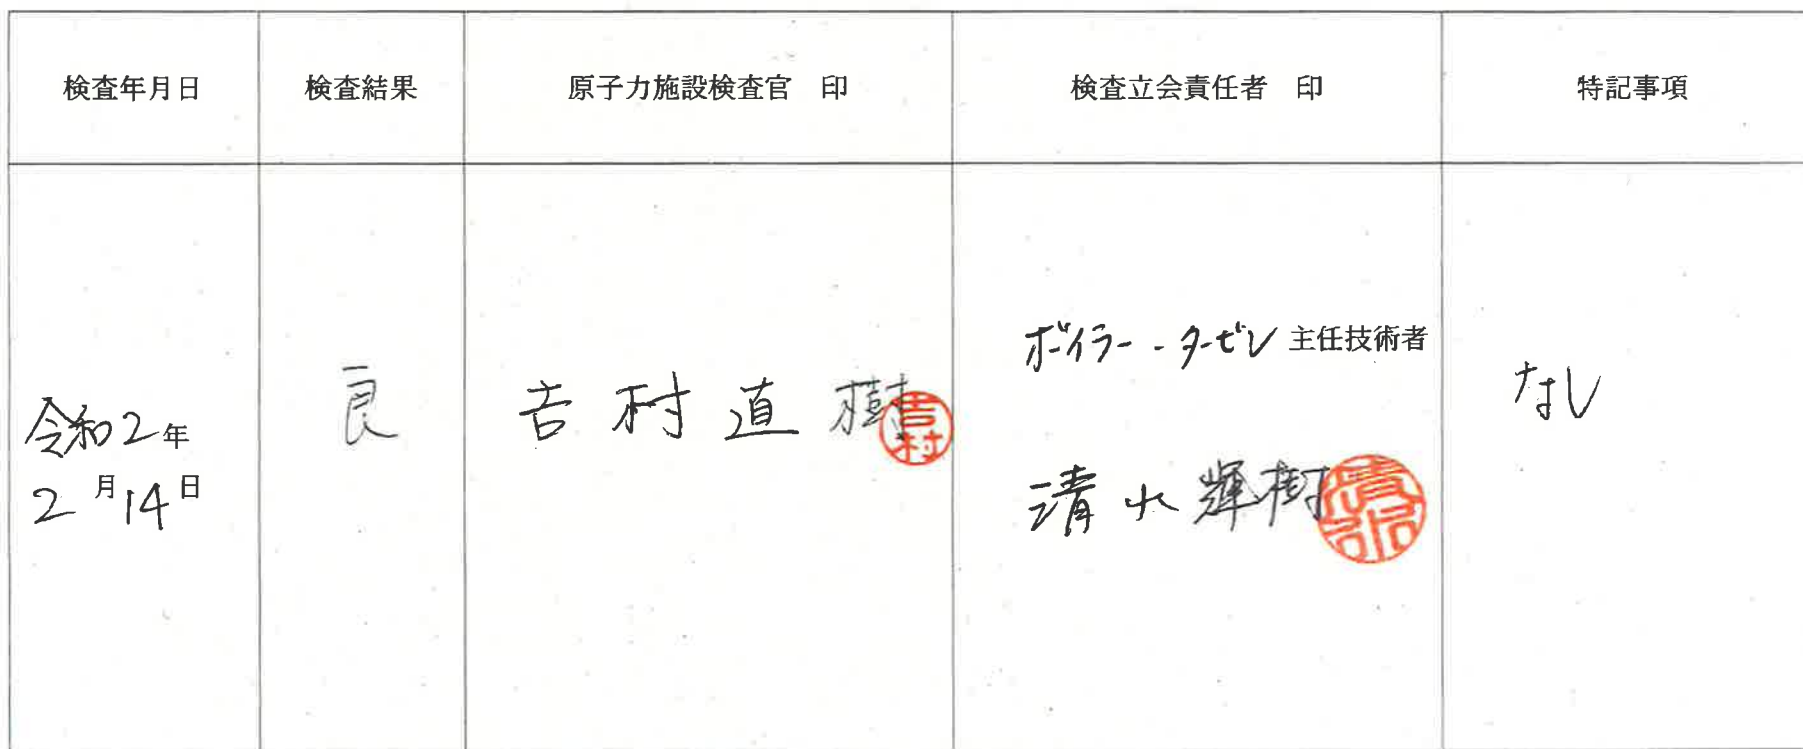 検査年月日
検査結果
原子力施設検査官 印
検査立会責任者 印
特記事項
令和2年
2月14日
良
吉村直樹
吉村
ボイラー・タービン主任技術者
清水輝樹
なし